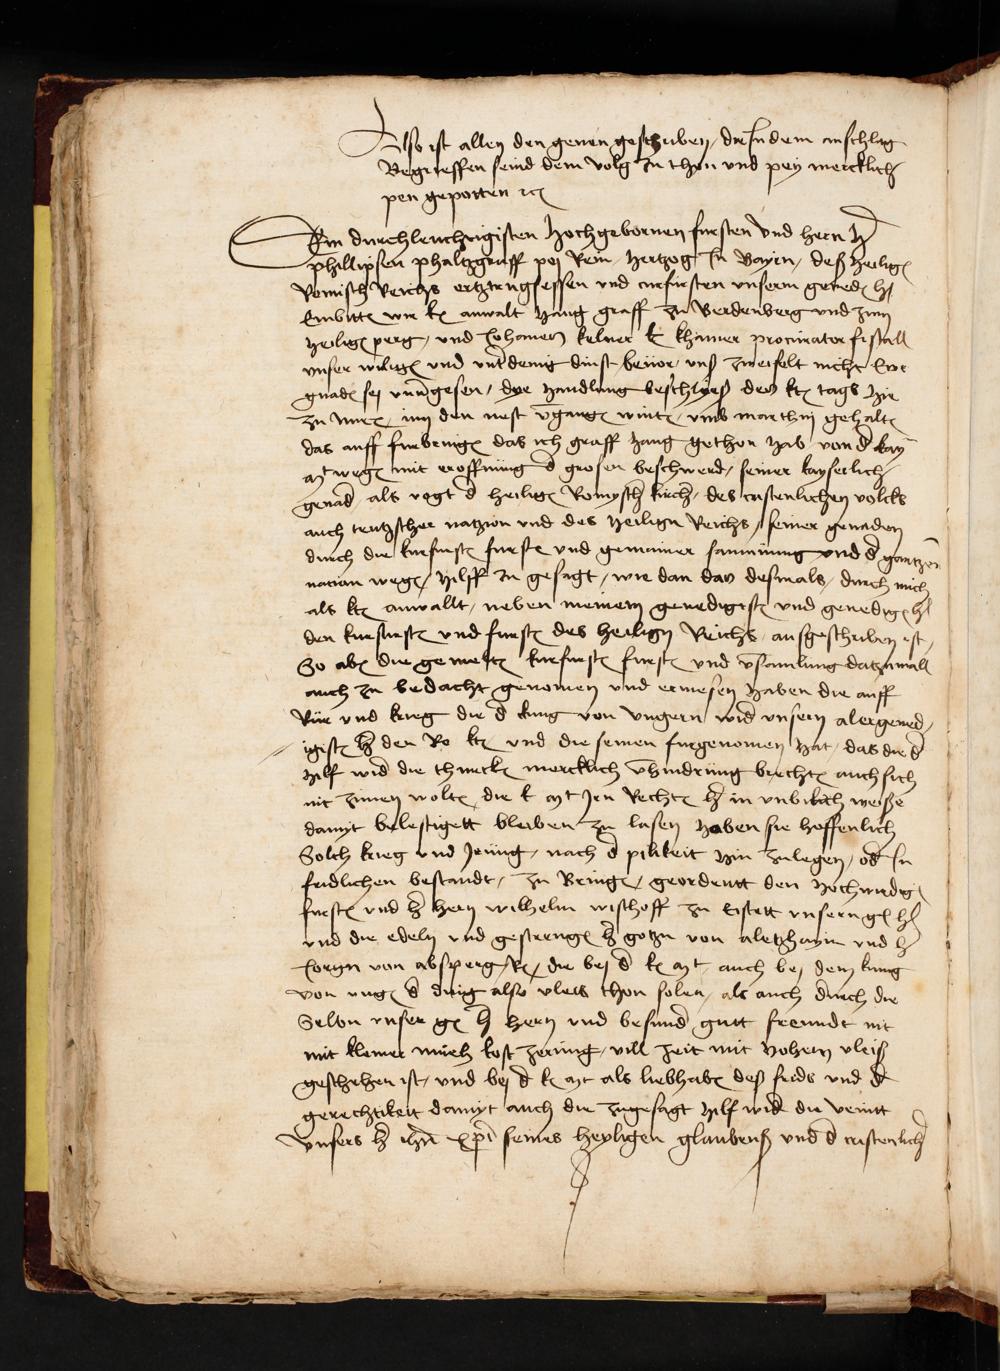 Also ist allen den genen geschriben, die In dem anschlag
Begrieffen seind dem volg zu thon und pey mercklich
pen gepotten etc
Dem durchleuchtigisten Hochgebornen fursten und hern h
phillipsen phaltzgraff pei Rein, Hertzog In Bayrn, deß Heilig
Romisch Reichs ertztrugsessen und curfursten unserm gened h
Embitt wir k anwalt Haug graff zu Werdenberg und zum
heilig perg, und Johannes kelner k khamer procurator fiscall
unser willig und untdenig dinst bevor, unß zweifelt nicht Ewr
gnad sej unvgesen, dye handlung beschlyeß des k tags hir
zu Nure, im den nest vgang wint, umb marthinj gehalt
das auff furbring das ich graff Haug gethon hab von d kay
mt weg mit eroffnung d grosen beschwerd, seiner kayserlich
genad als vogt d heilig Romysch kirch, des cristenlichen volcks
auch teutzscher natzion und des Heilign Reichs, seiner genaden
durch die kurfurst furst und gemainer samnung und d gantzen
nacion weg, Hilff zu gesagt, wie dan das desmals, durch mich
als k anwallt, neben meinem genedigist und genedig h
den kurfurst und furst des heilign Reichs, ausgeschriben ist,
So ab die gemelt kurfurst furst und vsamlung datzumall
auch zu bedacht genomen und ermesen haben die auff
Rur und krieg die d kung von ungern wid unsern alergened,
igist h den Ro k und die seinen furgenomen hat, das die d
hilf wid die thurck mercklich vhindrung brecht auch sich
nit zimen wolt, die k mt Jen Recht h in unbillich weiße
damyt belestigett bleiben zu lasen haben sie hoffenlich
Solch krieg und Jrung, nach d pilikeit hin zulegen, od In
fridlichen bestandt, zu Bring, geordentt den Hochwirdig
furst und h hern wilhelm wischoff zu Eistett unsern g h
und die edeln und gestreng h gotzn von aletzhaym und h
Jorgn von absperg, die bej d k mt, auch bej dem kung
von ung d ding also vleis thon solen, als auch durch die
Selbn unser g h hern und besund gutt freundt nit
mit kleiner mueh kost zerung, vill zeit mit hohem vleiß
geschehen ist, und bej d k mt als liebhab deß frids und d
gerechtikeit damyt auch die zugesagt hilf wid die veintt
unsers h ihu xpi seines heyligen glaubens und d cristenlich